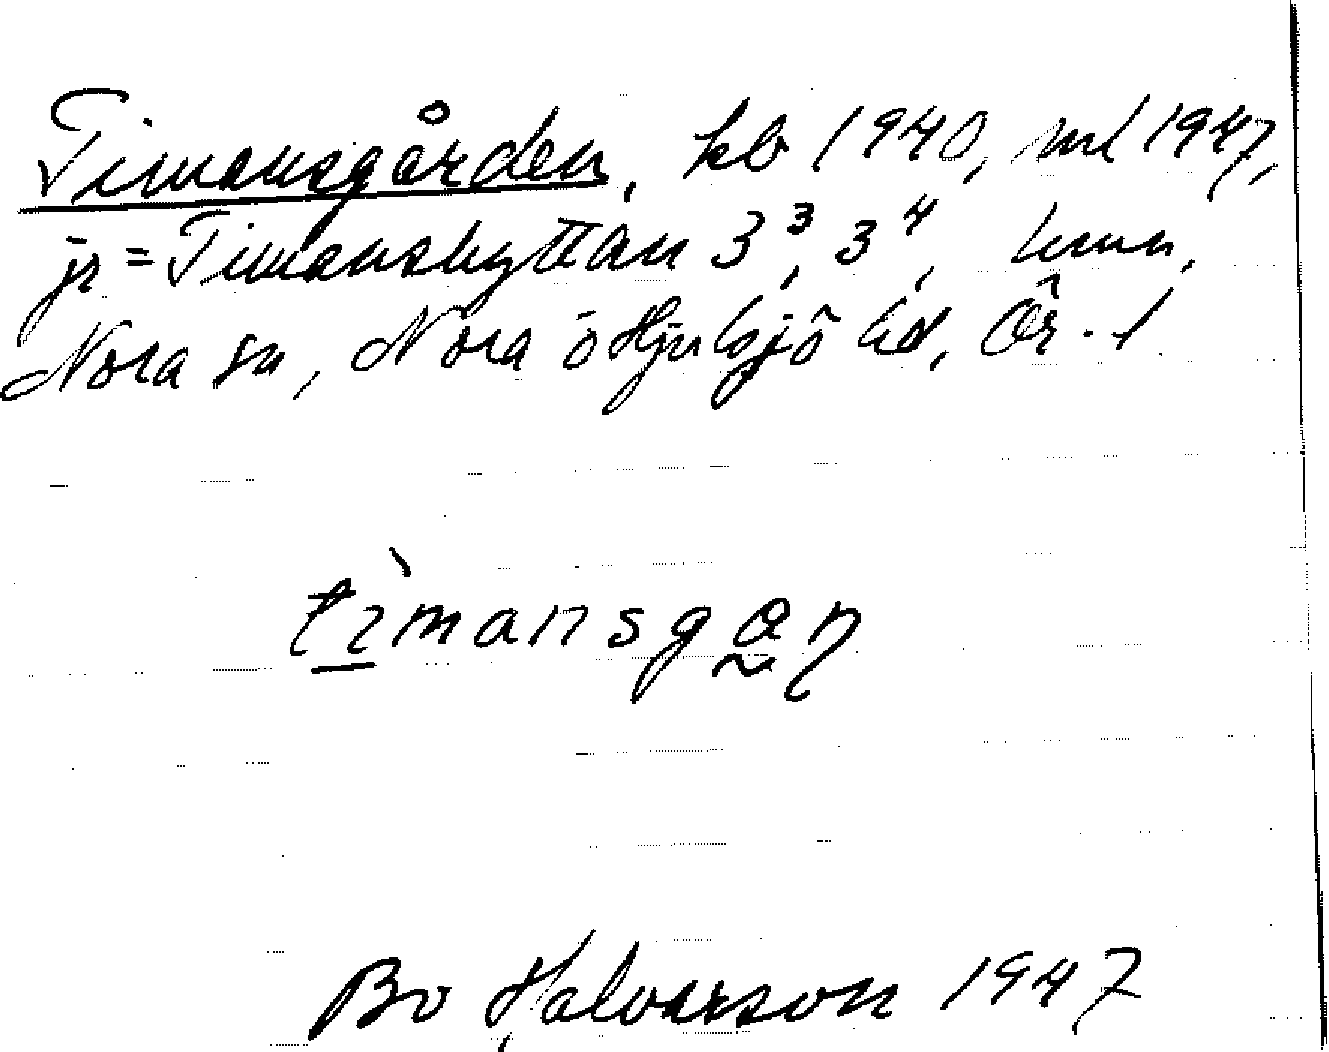 Timansgården, kb 1940, ml 1947,
jr = Timanshyttan 3³, 3⁴, hmn,
Nora sn, Nora o Hjulsjö hd, Ör. l
tìmansgan̩
Bo Halvarson 1947